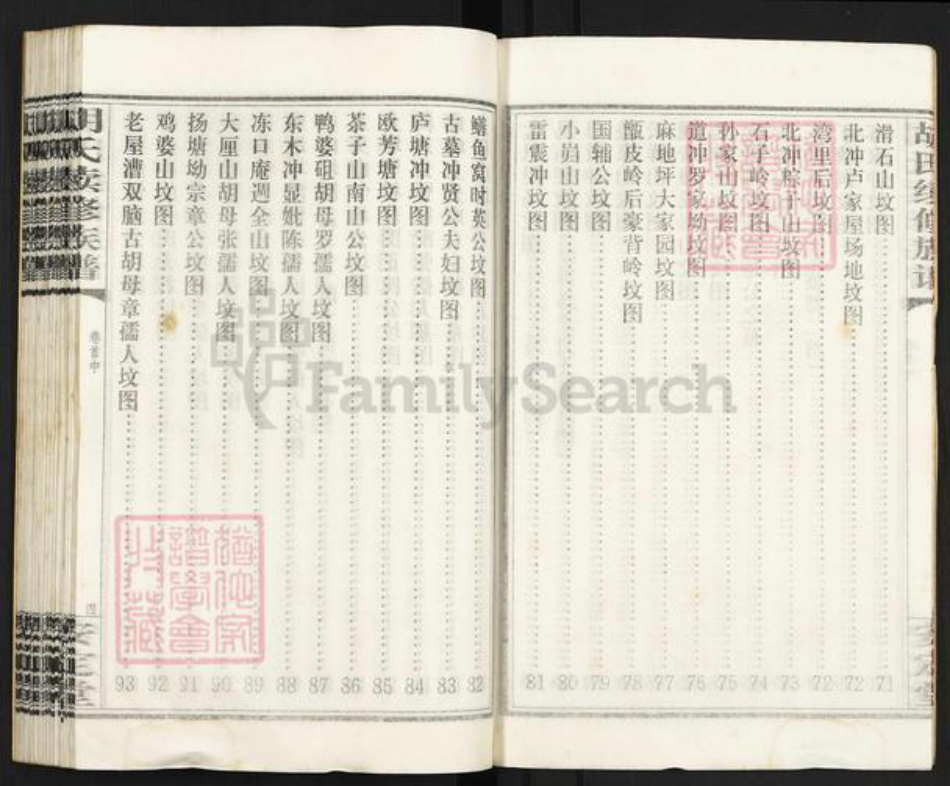 滑石山坟图 71
北冲卢家屋场地坟图 72
湾里后坟图 72
北冲粽子山坟图 73
石子岭坟图 74
孙家山坟图 75
道冲罗家坳坟图 76
麻地坪大家园坟图 77
甑皮岭后豪背岭坟图 78
国辅公坟图 79
小岿山坟图 80
雷震冲坟图 81
鳝鱼窝时英公坟图 82
古墓冲贤公夫妇坟图 83
庐塘冲坟图 84
欧芳塘坟图 85
茶子山南山公坟图 86
鸭婆砠胡母罗孺人坟图 87
东木冲显妣陈孺人坟图 88
冻口庵迥全山坟图 89
大厘山胡母张孺人坟图 90
扬塘坳宗章公坟图 91
鸡婆山坟图 92
老屋漕双脑古胡母章孺人坟图 93
胡氏续修族谱
卷首中
四
安定堂
FamilySearch